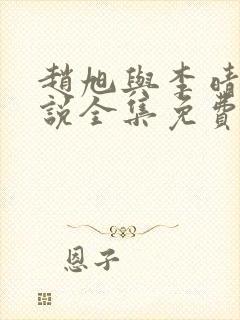 趙旭與李晴
說全集免費
恩子